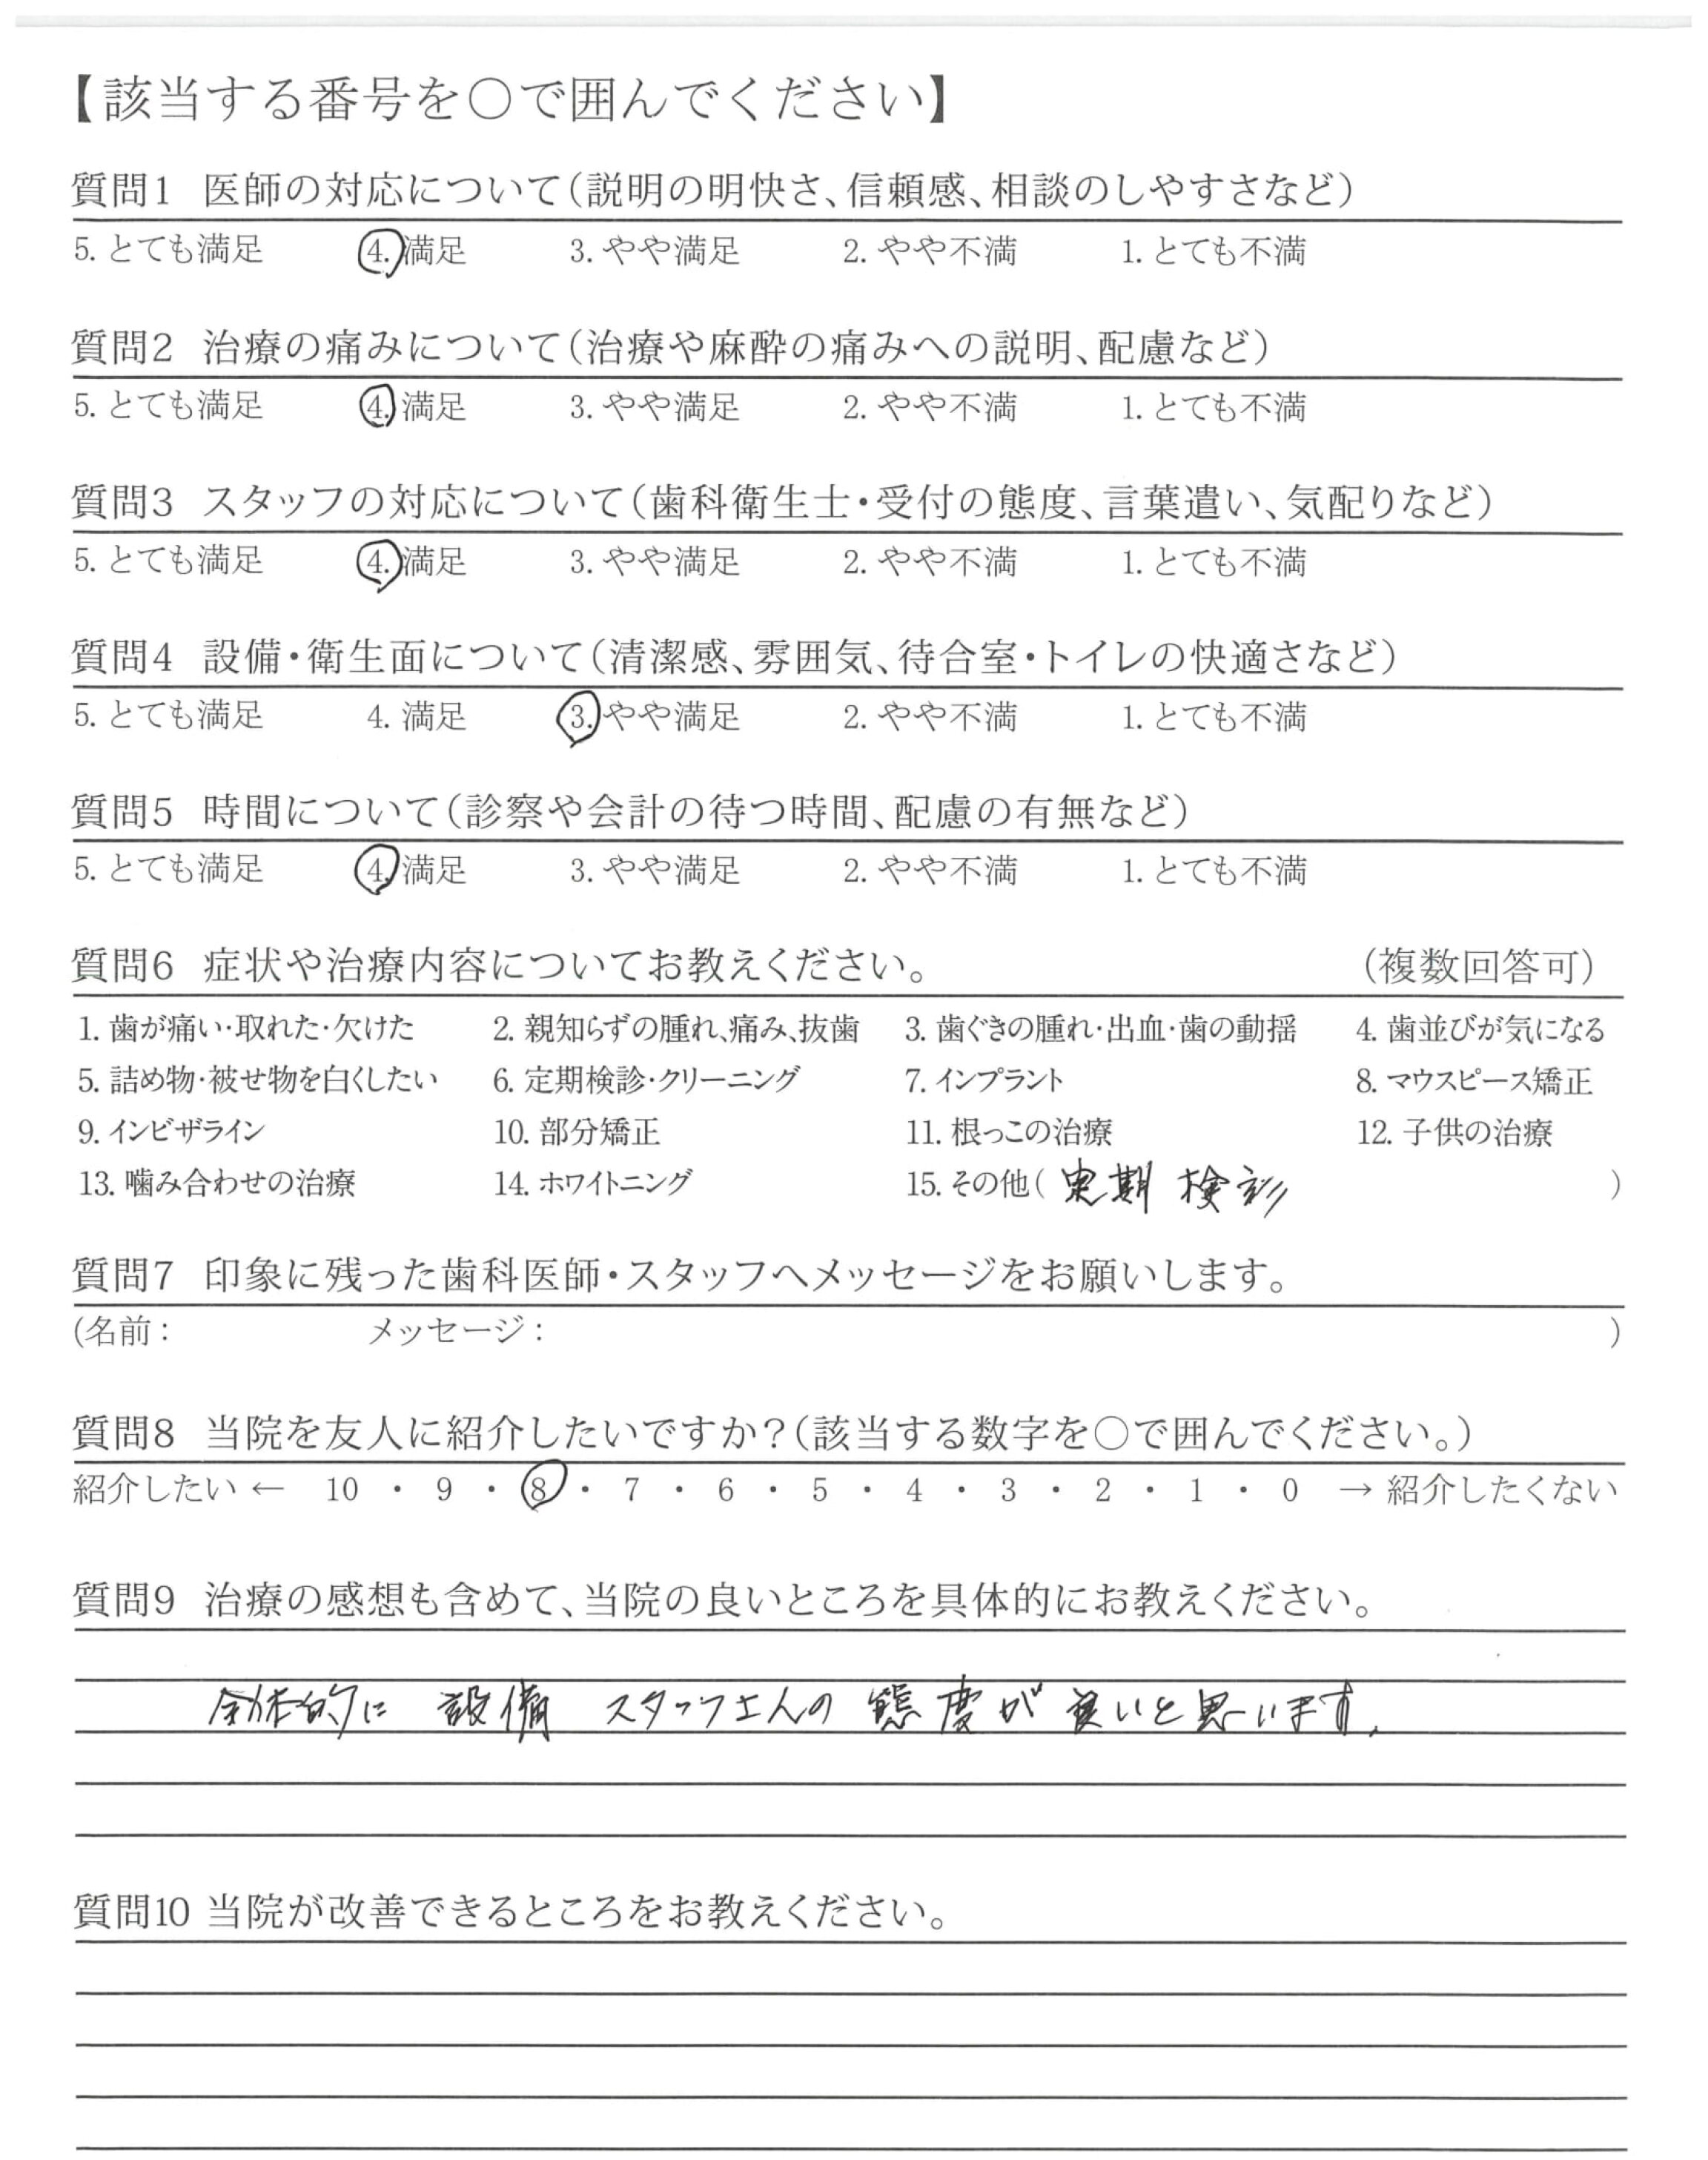 【該当する番号を○で囲んでください】
質問1 医師の対応について（説明の明快さ、信頼感、相談のしやすさなど）
5. とても満足 4. 満足 3. やや満足 2. やや不満 1. とても不満
質問2 治療の痛みについて（治療や麻酔の痛みへの説明、配慮など）
5. とても満足 4. 満足 3. やや満足 2. やや不満 1. とても不満
質問3 スタッフの対応について（歯科衛生士・受付の態度、言葉遣い、気配りなど）
5. とても満足 4. 満足 3. やや満足 2. やや不満 1. とても不満
質問4 設備・衛生面について（清潔感、雰囲気、待合室・トイレの快適さなど）
5. とても満足 4. 満足 3. やや満足 2. やや不満 1. とても不満
質問5 時間について（診察や会計の待つ時間、配慮の有無など）
5. とても満足 4. 満足 3. やや満足 2. やや不満 1. とても不満
質問6 症状や治療内容についてお教えください。 （複数回答可）
1. 歯が痛い・取れた・欠けた 2. 親知らずの腫れ、痛み、抜歯 3. 歯ぐきの腫れ・出血・歯の動揺 4. 歯並びが気になる
5. 詰め物・被せ物を白くしたい 6. 定期検診・クリーニング 7. インプラント 8. マウスピース矯正
9. インビザライン 10. 部分矯正 11. 根っこの治療 12. 子供の治療
13. 噛み合わせの治療 14. ホワイトニング 15. その他（ 定期検診 ）
質問7 印象に残った歯科医師・スタッフへメッセージをお願いします。
(名前： メッセージ： )
質問8 当院を友人に紹介したいですか？（該当する数字を○で囲んでください。）
紹介したい ← 10 ・ 9 ・ 8 ・ 7 ・ 6 ・ 5 ・ 4 ・ 3 ・ 2 ・ 1 ・ 0 → 紹介したくない
質問9 治療の感想も含めて、当院の良いところを具体的にお教えください。
全体的に 設備 スタッフさんの 態度が 良いと思います.
質問10 当院が改善できるところをお教えください。